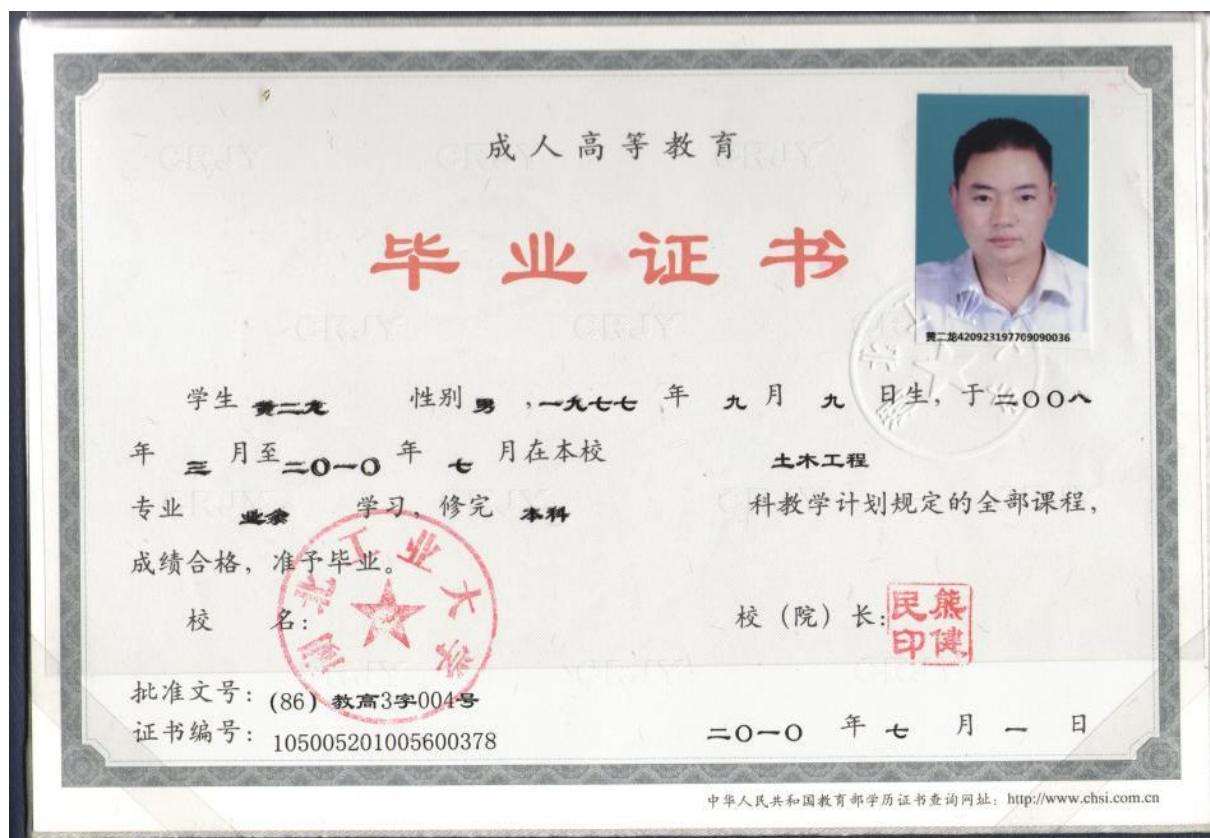 成人高等教育
毕业证书
黄二龙420923197709090036
学生 黄二龙 性别 男 ,一九七七 年 九 月 九 日生, 于二〇〇八
年 三 月至二〇一〇 年 七 月在本校 土木工程
专业 业余 学习, 修完 本科 科教学计划规定的全部课程,
成绩合格, 准予毕业。
校 名: 湖北工业大学
校 (院) 长: 熊健民印
批准文号: (86) 教高3字004号
证书编号: 105005201005600378
二〇一〇 年 七 月 一 日
中华人民共和国教育部学历证书查询网址: http://www.chsi.com.cn
CRJY CRJY CRJY
CRJY CRJY